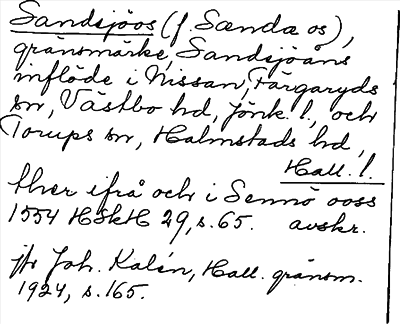 Sandsjöos (f. Sænda os),
gränsmärke, Sandsjöåns
inflöde i Nissan, Färgaryds
sn, Västbo hd, Jönk. l., och
Torups sn, Halmstads hd,
Hall. l.
ther ifrå och i Sennö ooss
1554 HSkH 29, s. 65. avskr.
jfr Joh. Kalén, Hall. gränsm.
1924, s. 165.